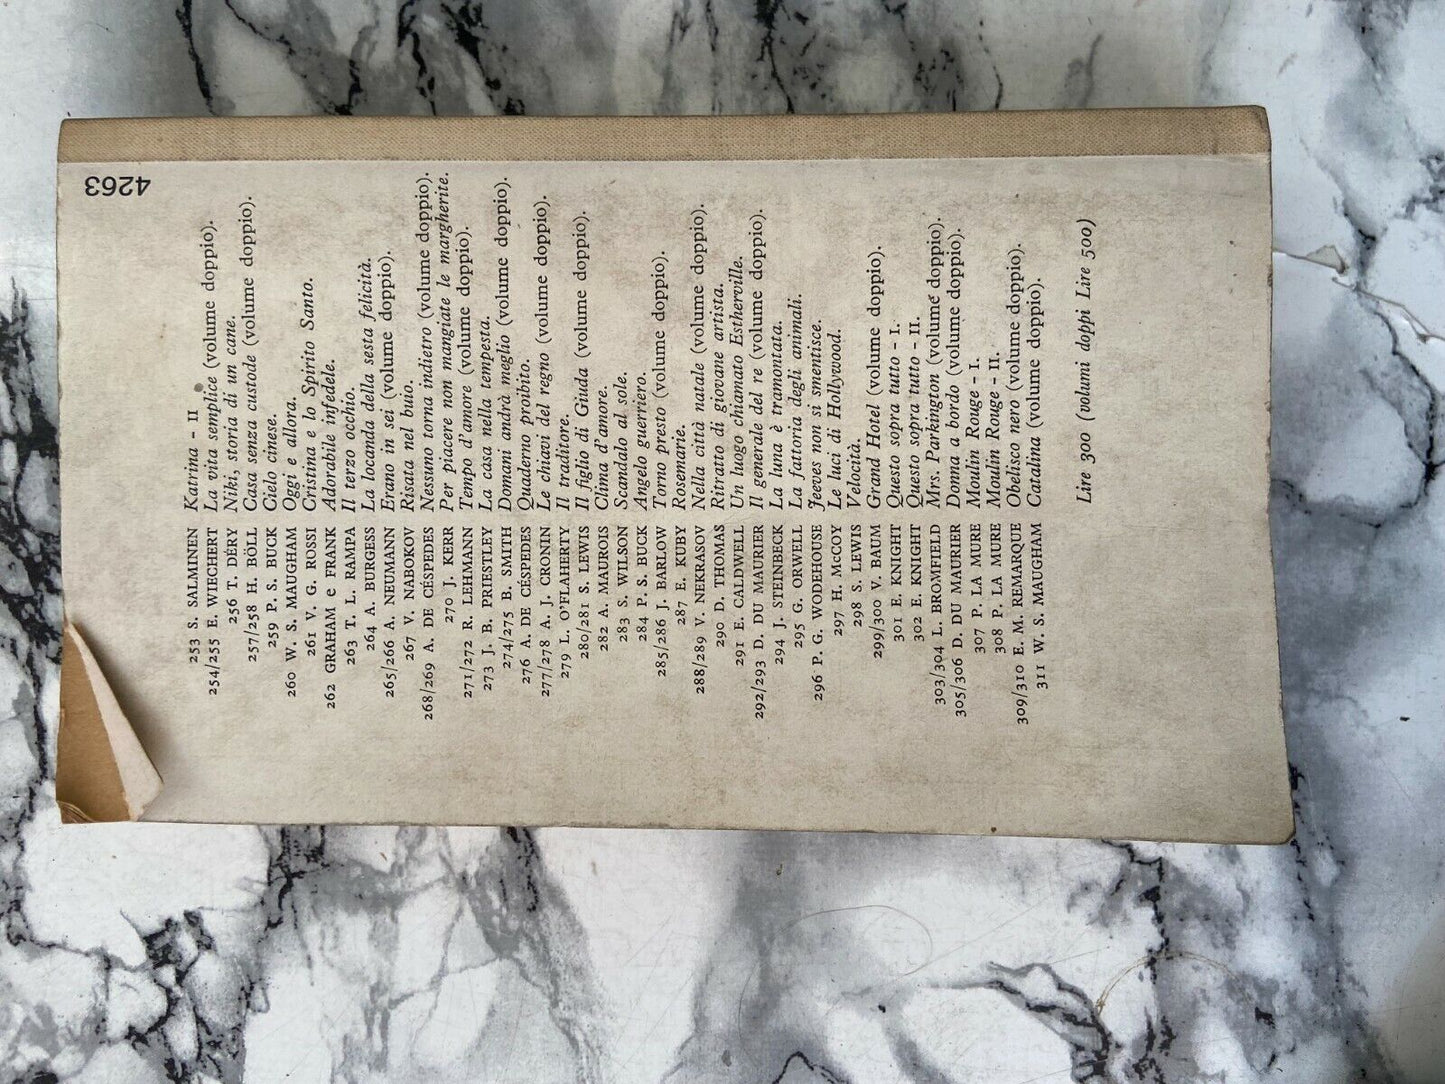 253 S. SALMINEN Katrina - II
254/255 E. WIECHERT La vita semplice (volume doppio).
256 T. DÉRY Niki, storia di un cane.
257/258 H. BÖLL Casa senza custode (volume doppio).
259 P. S. BUCK Cielo cinese.
260 W. S. MAUGHAM Oggi e allora.
261 V. G. ROSSI Cristina e lo Spirito Santo.
262 GRAHAM e FRANK Adorabile infedele.
263 T. L. RAMPA Il terzo occhio.
264 A. BURGESS La locanda della sesta felicità.
265/266 A. NEUMANN Erano in sei (volume doppio).
267 V. NABOKOV Risata nel buio.
268/269 A. DE CÉSPEDES Nessuno torna indietro (volume doppio).
270 J. KERR Per piacere non mangiate le margherite.
271/272 R. LEHMANN Tempo d'amore (volume doppio).
273 J. B. PRIESTLEY La casa nella tempesta.
274/275 B. SMITH Domani andrà meglio (volume doppio).
276 A. DE CÉSPEDES Quaderno proibito.
277/278 A. J. CRONIN Le chiavi del regno (volume doppio).
279 L. O'FLAHERTY Il traditore.
280/281 S. LEWIS Il figlio di Giuda (volume doppio).
282 A. MAUROIS Clima d'amore.
283 S. WILSON Scandalo al sole.
284 P. S. BUCK Angelo guerriero.
285/286 J. BARLOW Torno presto (volume doppio).
287 E. KUBY Rosemarie.
288/289 V. NEKRASOV Nella città natale (volume doppio).
290 D. THOMAS Ritratto di giovane artista.
291 E. CALDWELL Un luogo chiamato Estherville.
292/293 D. DU MAURIER Il generale del re (volume doppio).
294 J. STEINBECK La luna è tramontata.
295 G. ORWELL La fattoria degli animali.
296 P. G. WODEHOUSE Jeeves non si smentisce.
297 H. McCOY Le luci di Hollywood.
298 S. LEWIS Velocità.
299/300 V. BAUM Grand Hotel (volume doppio).
301 E. KNIGHT Questo sopra tutto - I.
302 E. KNIGHT Questo sopra tutto - II.
303/304 L. BROMFIELD Mrs. Parkington (volume doppio).
305/306 D. DU MAURIER Donna a bordo (volume doppio).
307 P. LA MURE Moulin Rouge - I.
308 P. LA MURE Moulin Rouge - II.
309/310 E. M. REMARQUE Obelisco nero (volume doppio).
311 W. S. MAUGHAM Catalina (volume doppio).
Lire 300 (volumi doppi Lire 500)
4263